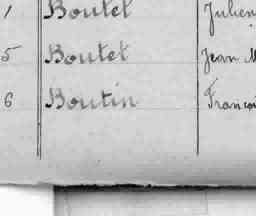 1 Boutet Julien
5 Boutet Jean M
6 Boutin Françoi